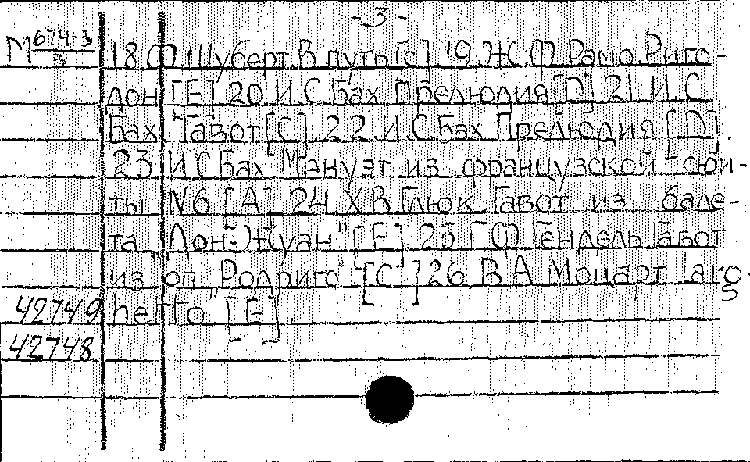 -3-
М 674-3
18. Ф. Шуберт. В путь [G] 19. Ж. Ф. Рамо. Риго-
дон [E] 20. И. С. Бах. Прелюдия [D] 21. И. С.
Бах. Гавот [C] 22. И. С. Бах. Прелюдия [D].
23. И. С. Бах. Менуэт из французской сюи-
ты №6 [A] 24. Х. В. Глюк. Гавот из бале-
та "Дон-Жуан" [E] 25. Г. Ф. Гендель. Гавот
из оп. "Родриго" [C] 26. В. А. Моцарт. "Larg-
42749 hetto" [E]
42748